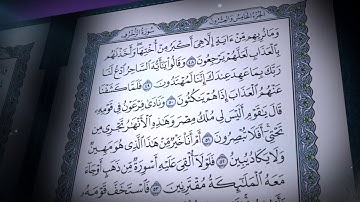 الجزء الخامس والعشرون سورة الزخرف
وَمَا نُرِيهِم مِّنْ ءَايَةٍ إِلَّا هِيَ أَكْبَرُ مِنْ أُخْتِهَا وَأَخَذْنَٰهُم
بِالْعَذَابِ لَعَلَّهُمْ يَرْجِعُونَ ٤٨ وَقَالُوا۟ يَٰٓأَيُّهَ السَّاحِرُ ادْعُ لَنَا
رَبَّكَ بِمَا عَهِدَ عِندَكَ إِنَّنَا لَمُهْتَدُونَ ٤٩ فَلَمَّا كَشَفْنَا
عَنْهُمُ الْعَذَابَ إِذَا هُمْ يَنكُثُونَ ٥٠ وَنَادَىٰ فِرْعَوْنُ فِي قَوْمِهِۦ
قَالَ يَٰقَوْمِ أَلَيْسَ لِي مُلْكُ مِصْرَ وَهَٰذِهِ الْأَنْهَٰرُ تَجْرِي مِن
تَحْتِيٓ أَفَلَا تُبْصِرُونَ ٥١ أَمْ أَنَا۠ خَيْرٌ مِّنْ هَٰذَا الَّذِي هُوَ مَهِينٌ
وَلَا يَكَادُ يُبِينُ ٥٢ فَلَوْلَآ أُلْقِيَ عَلَيْهِ أَسْوِرَةٌ مِّن ذَهَبٍ أَوْ جَآءَ
مَعَهُ الْمَلَٰٓئِكَةُ مُقْتَرِنِينَ ٥٣ فَاسْتَخَفَّ قَوْمَهُۥ